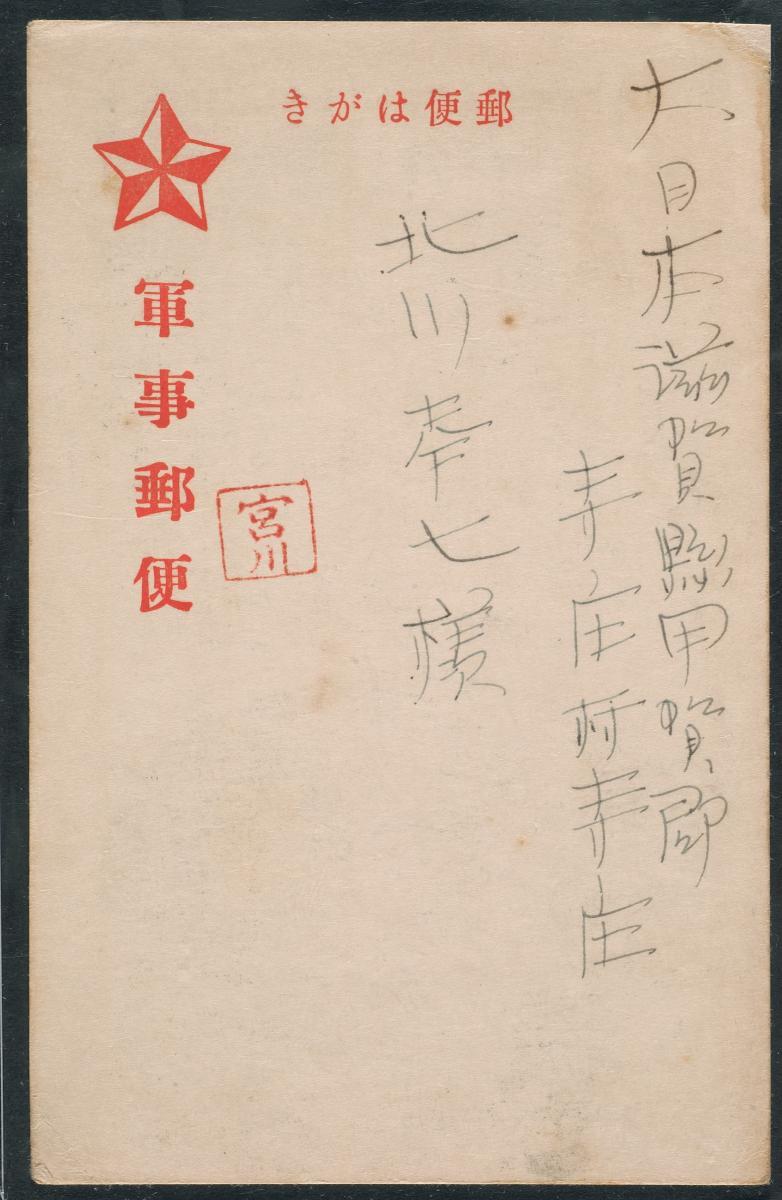 郵便はがき
大日本滋賀縣甲賀郡
寺庄村寺庄
北川幸七様
軍事郵便
宮川